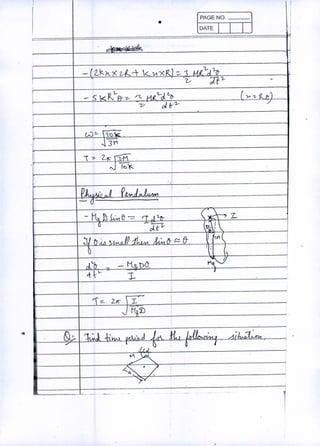 PAGE NO.
DATE
-(2kx × 2R + kx × R) = 3/2 MR² d²θ/dt²
-5kR²θ = 3/2 MR² d²θ/dt² (x = Rθ)
ω = √(10k/3M)
T = 2π √(3M/10k)
Physical Pendulum
-MgD sinθ = I d²θ/dt²
I
If θ is small then sinθ ≈ θ
D
Mg
d²θ/dt² = -MgDθ/I
T = 2π √(I/MgD)
Q:- Find time period for the following situation.
M